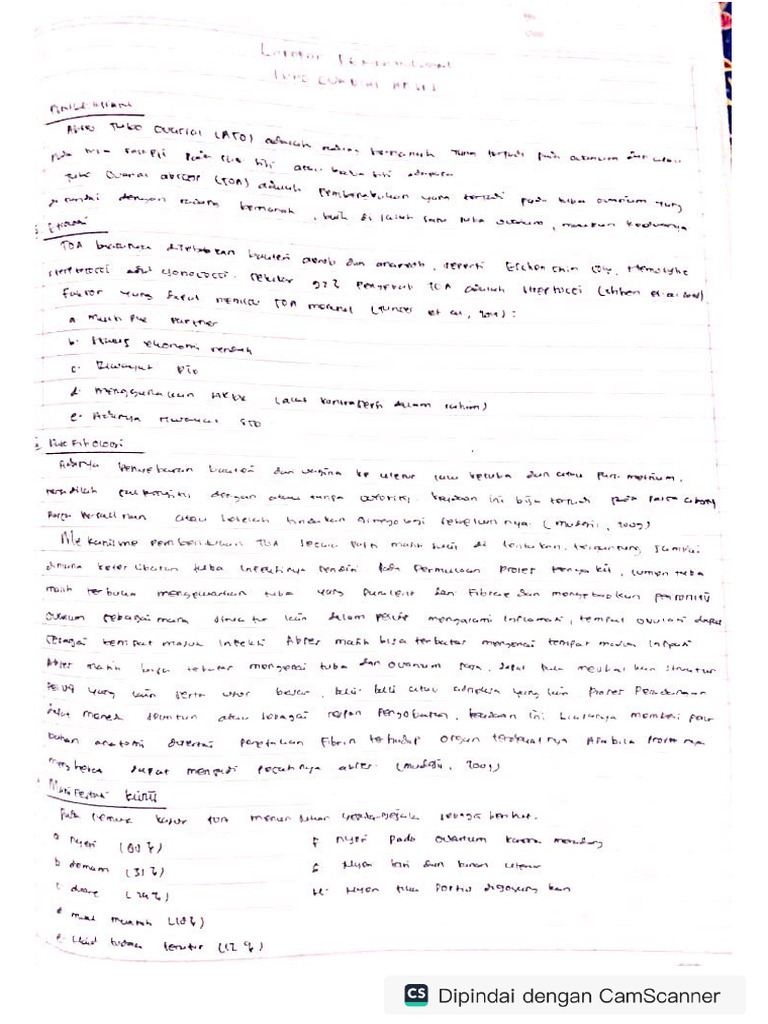 Laporan Pendahuluan
Tubo Ovarial Abses
Abses Tubo Ovarial (ATO) adalah radang bernanah yang terjadi pada ovarium dan atau
pada satu sisi atau kedua sisi adneksa
Tubo Ovarial abscess (TOA) adalah pembengkakan yang terjadi pada tuba ovarium yang
di tandai dengan radang bernanah, baik di salah satu tuba ovarium, maupun keduanya
Etiologi
TOA biasanya disebabkan bakteri aerob dan anaerob, seperti Escherichia coly, Hemolytic
streptococci dan Gonococci. sekitar 92% penyebab TOA adalah streptococci
Faktor yang dapat memicu TOA menurut
a Multiple Partner
b. Status ekonomi rendah
c. Riwayat PID
d. Menggunakan AKDR (alat kontrasepsi dalam rahim)
e. Adanya riwayat STD
Patofisiologi
Adanya penyebaran bakteri dari vagina ke uterus lalu ke tuba dan atau parametrium,
terjadilah salpingitis dengan atau tanpa ooforitis. keadaan ini bisa terjadi pada pasca abortus
pasca persalinan atau setelah tindakan Ginekologi sebelumnya. 2009)
Mekanisme pembentukan TOA secara pasti masih sulit di tentukan, tergantung sampai
dimana keterlibatan tuba infeksinya sendiri pada permulaan proses penyakit, lumen tuba
masih terbuka mengeluarkan tuba yang purulent dan Fibrae dan menyebabkan
ovarium sebagai mana struktur lain dalam pelvis mengalami inflamasi, tempat ovulasi dapat
sebagai tempat masuk infeksi Abses masih bisa terbatas mengenai tempat
Abses masih bisa terbatas mengenai tuba dan ovarium saja, dapat pula melibatkan struktur
pelvis yang lain serta usus besar, buli-buli atau adneksa yang lain proses peradangan
dapat mereda spontan atau sebagai respon pengobatan, keadaan ini biasanya memberi
bahan anatomi disertai perlekatan Fibrin terhadap organ terdekatnya Apabila prosesnya
menghebat dapat menjadi pecahnya abses. 2009)
Manifestasi klinis
Pada semua kasus TOA menunjukkan gejala-gejala sebagai berikut.
a Nyeri
b demam (31%)
c diare (24%)
d mual muntah
e. Haid tidak teratur (12 %)
F Nyeri pada ovarium karena
G Nyeri kiri dan kanan uterus
H. Nyeri bila portio digoyangkan
CS Dipindai dengan CamScanner